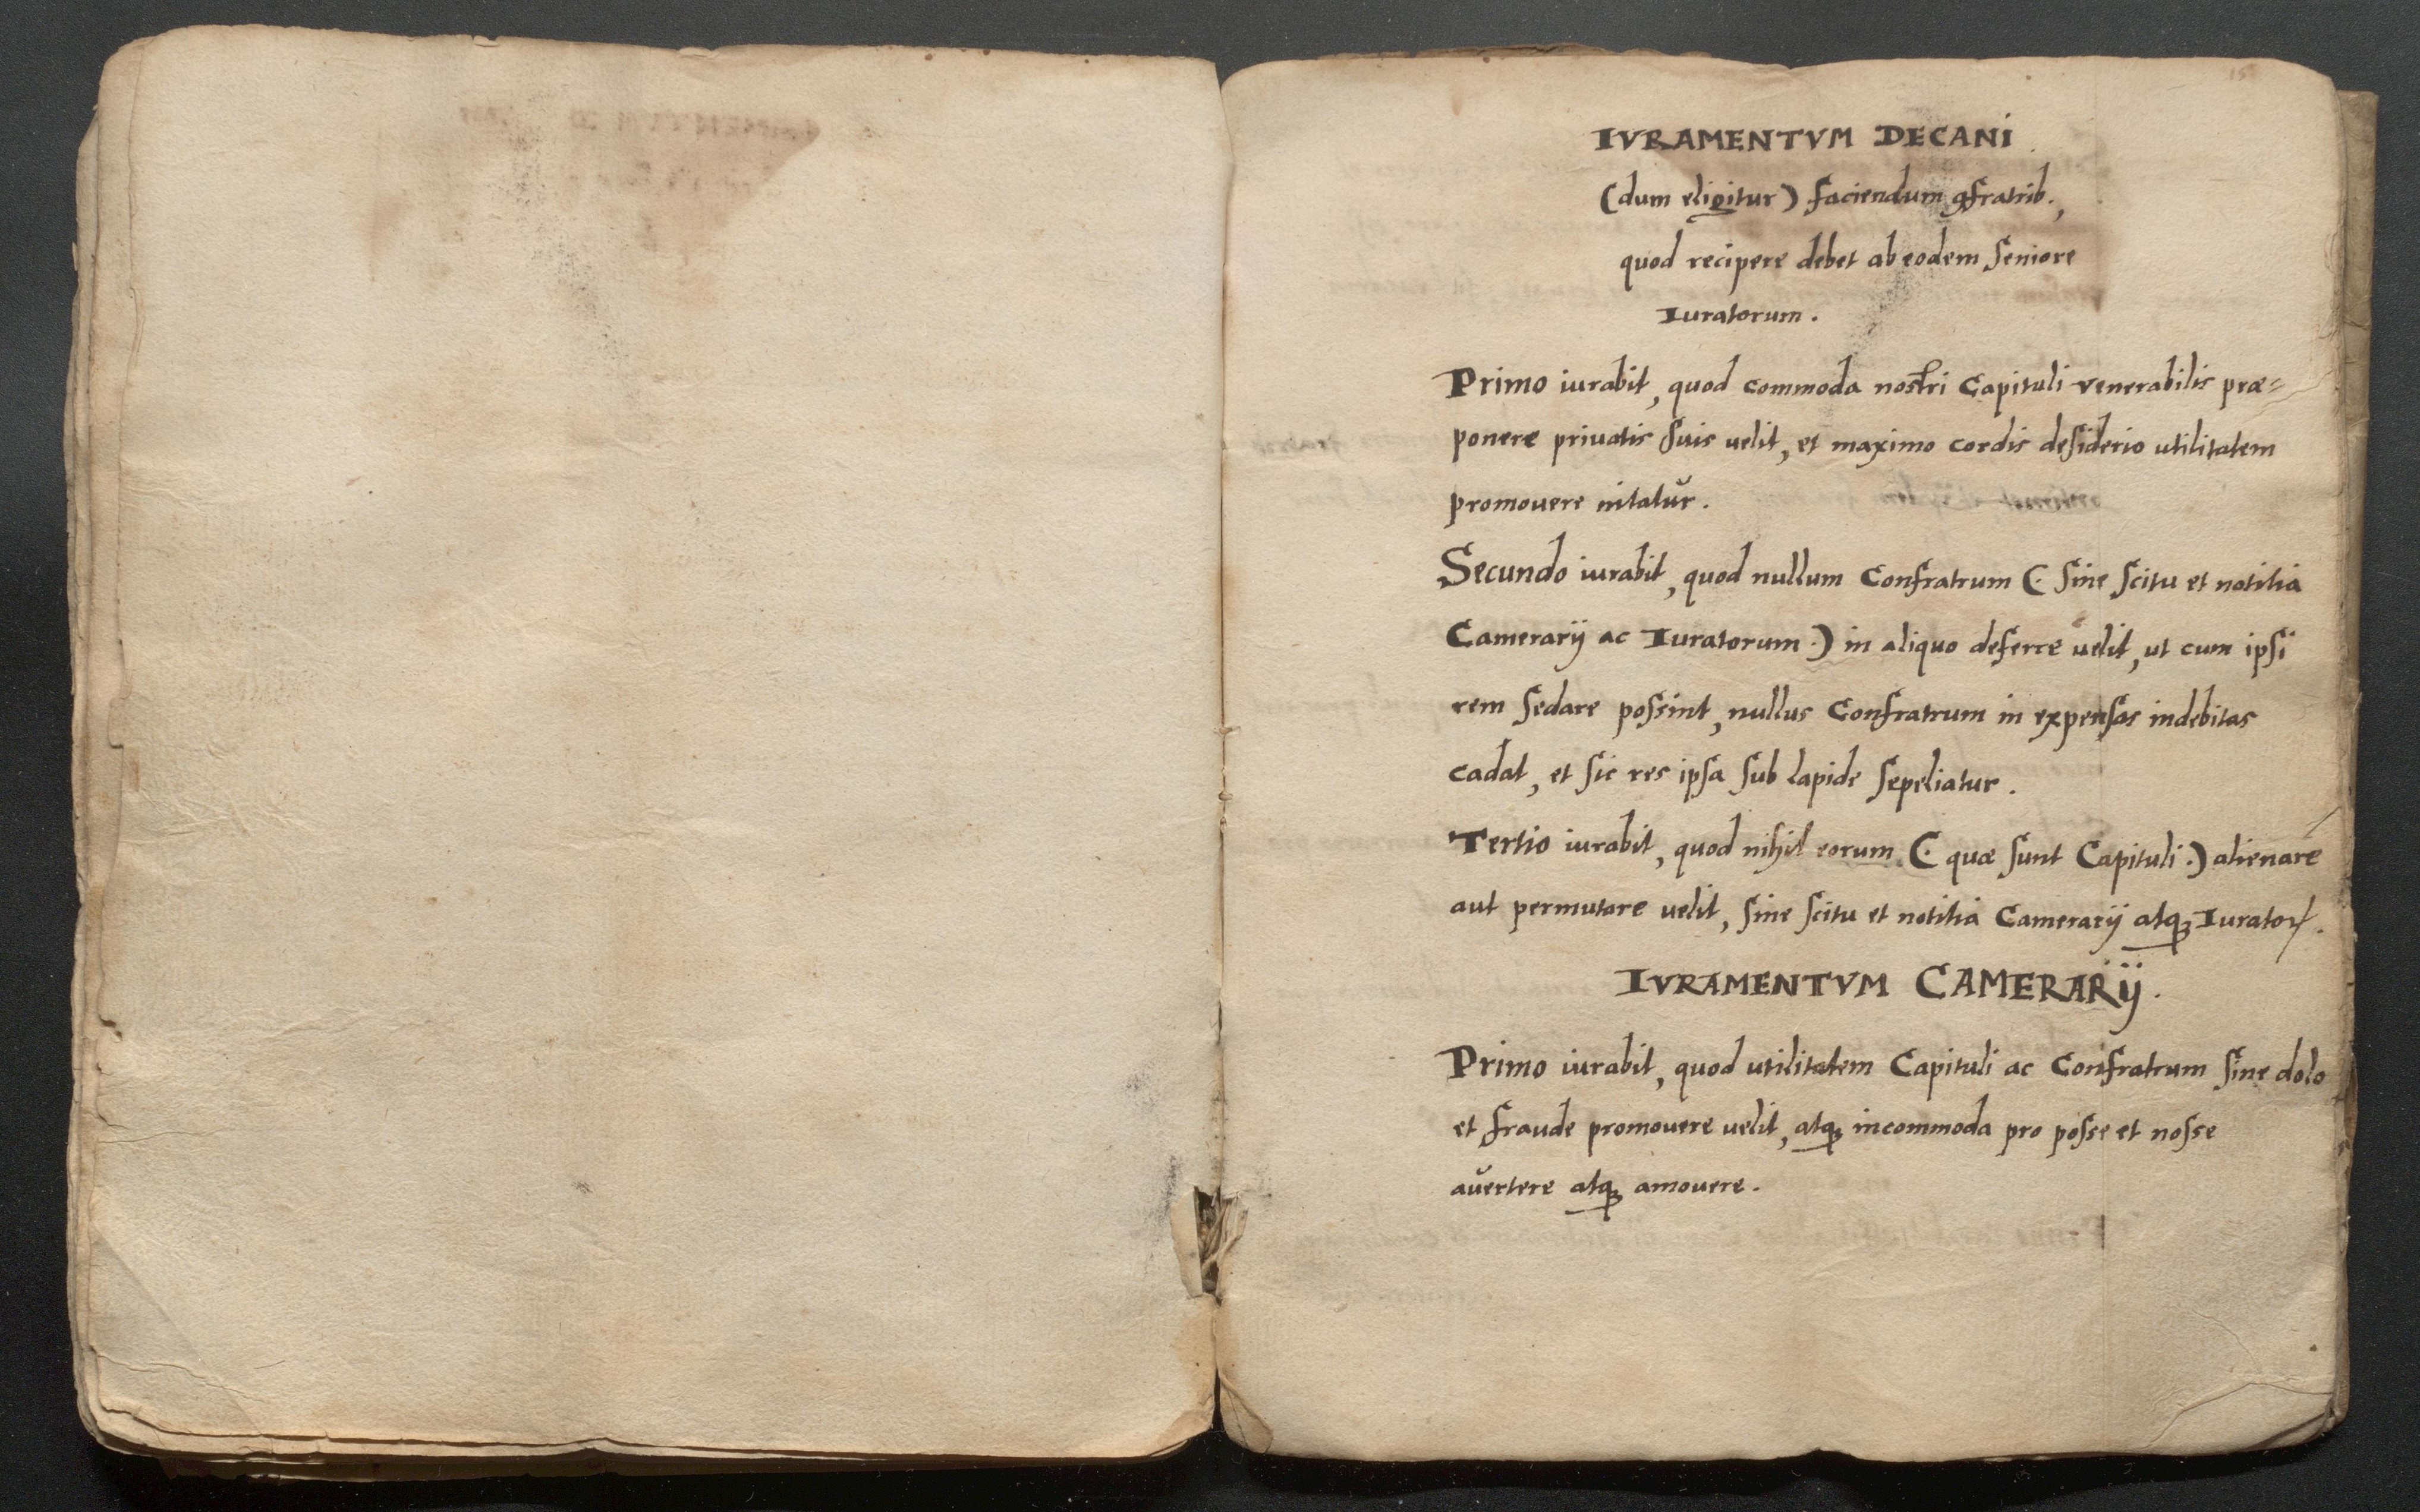 IVRAMENTVM DECANI
(dum eligitur) faciendum ꝯfratrib.,
quod recipere debet ab eodem Seniore
Iuratorum.
Primo iurabit, quod commoda nostri Capituli venerabilis præ=
ponere priuatis suis uelit, et maximo cordis desiderio utilitatem
promouere nitatŭr.
Secundo iurabit, quod nullum Confratrum (. sine scitu et notitiâ
Camerarij ac Iuratorum .) in aliquo deferre uelit, ut cum ipsi
rem sedare possint, nullus Confratrum in expensas indebitas
cadat, et sic res ipsa sub lapide sepeliatur.
Tertio iurabit, quod nihil eorum (. quæ sunt Capituli .) alienare
aut permutare uelit, sine scitu et notitiâ Camerarij atqꝫ Iuratoꝝ.
IVRAMENTVM CAMERARij.
Primo iurabit, quod utilitatem Capituli ac Confratrum sine dolo
et fraude promouere uelit, atqꝫ incommoda pro posse et nosse
aŭertere atqꝫ amouere.